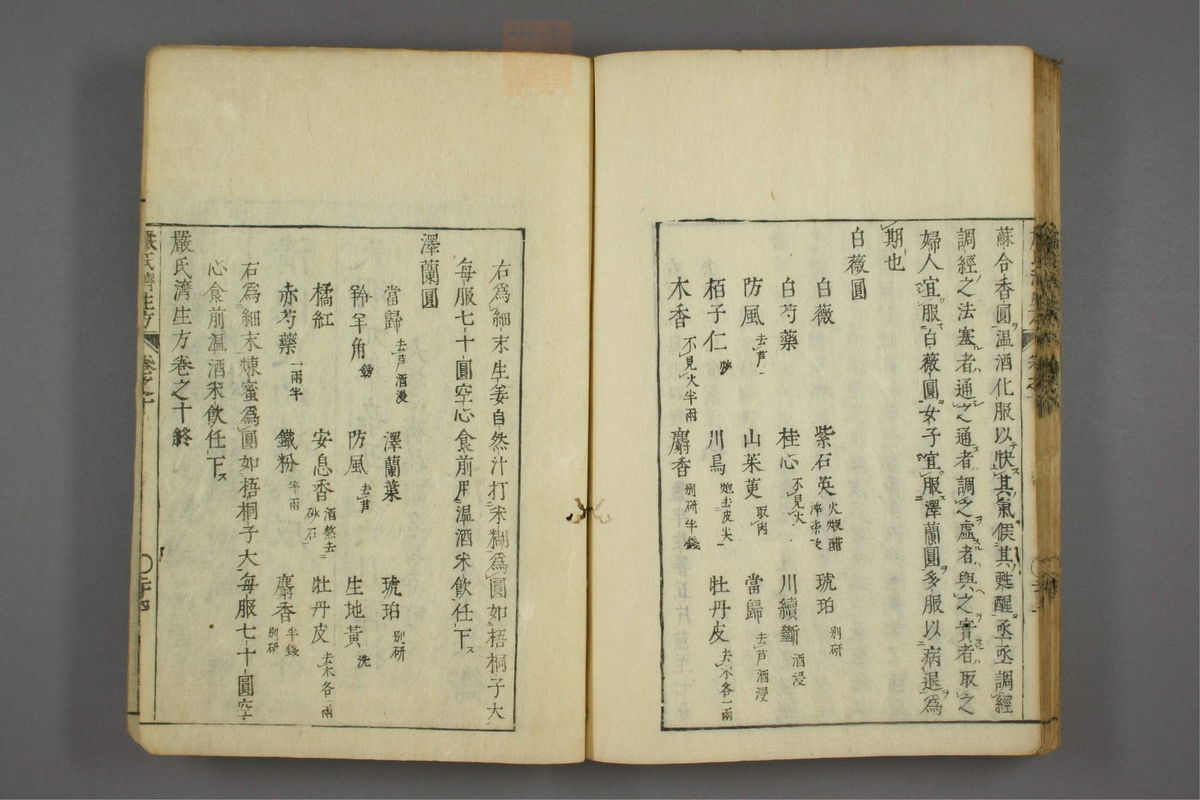 蘇合香圓温酒化服以快其氣候其甦醒亟亟調經
調經之法塞者通之通者調之虚者與之實者取之
婦人宜服白薇圓女子宜服澤蘭圓多服以病退為
期也
白薇圓
白薇 紫石英火煅醋淬 琥珀別研
白芍藥 桂心不見火 川續斷酒浸
防風去芦 山茱萸取肉 當歸去芦酒浸
栢子仁炒 川烏炮去皮尖 牡丹皮去木各一兩
木香不見火半兩 麝香別研半錢
右為細末生姜自然汁打米糊為圓如梧桐子大
每服七十圓空心食前用温酒米飲任下
澤蘭圓
當歸去芦酒浸 澤蘭葉 琥珀別研
羚羊角鎊 防風去芦 生地黄洗
橘紅 安息香酒熬去砂石 牡丹皮去木各一兩
赤芍藥一兩半 鐵粉半兩 麝香半錢別研
右為細末煉蜜為圓如梧桐子大每服七十圓空
心食前温酒米飲任下
嚴氏濟生方卷之十終
嚴氏濟生方 卷之十